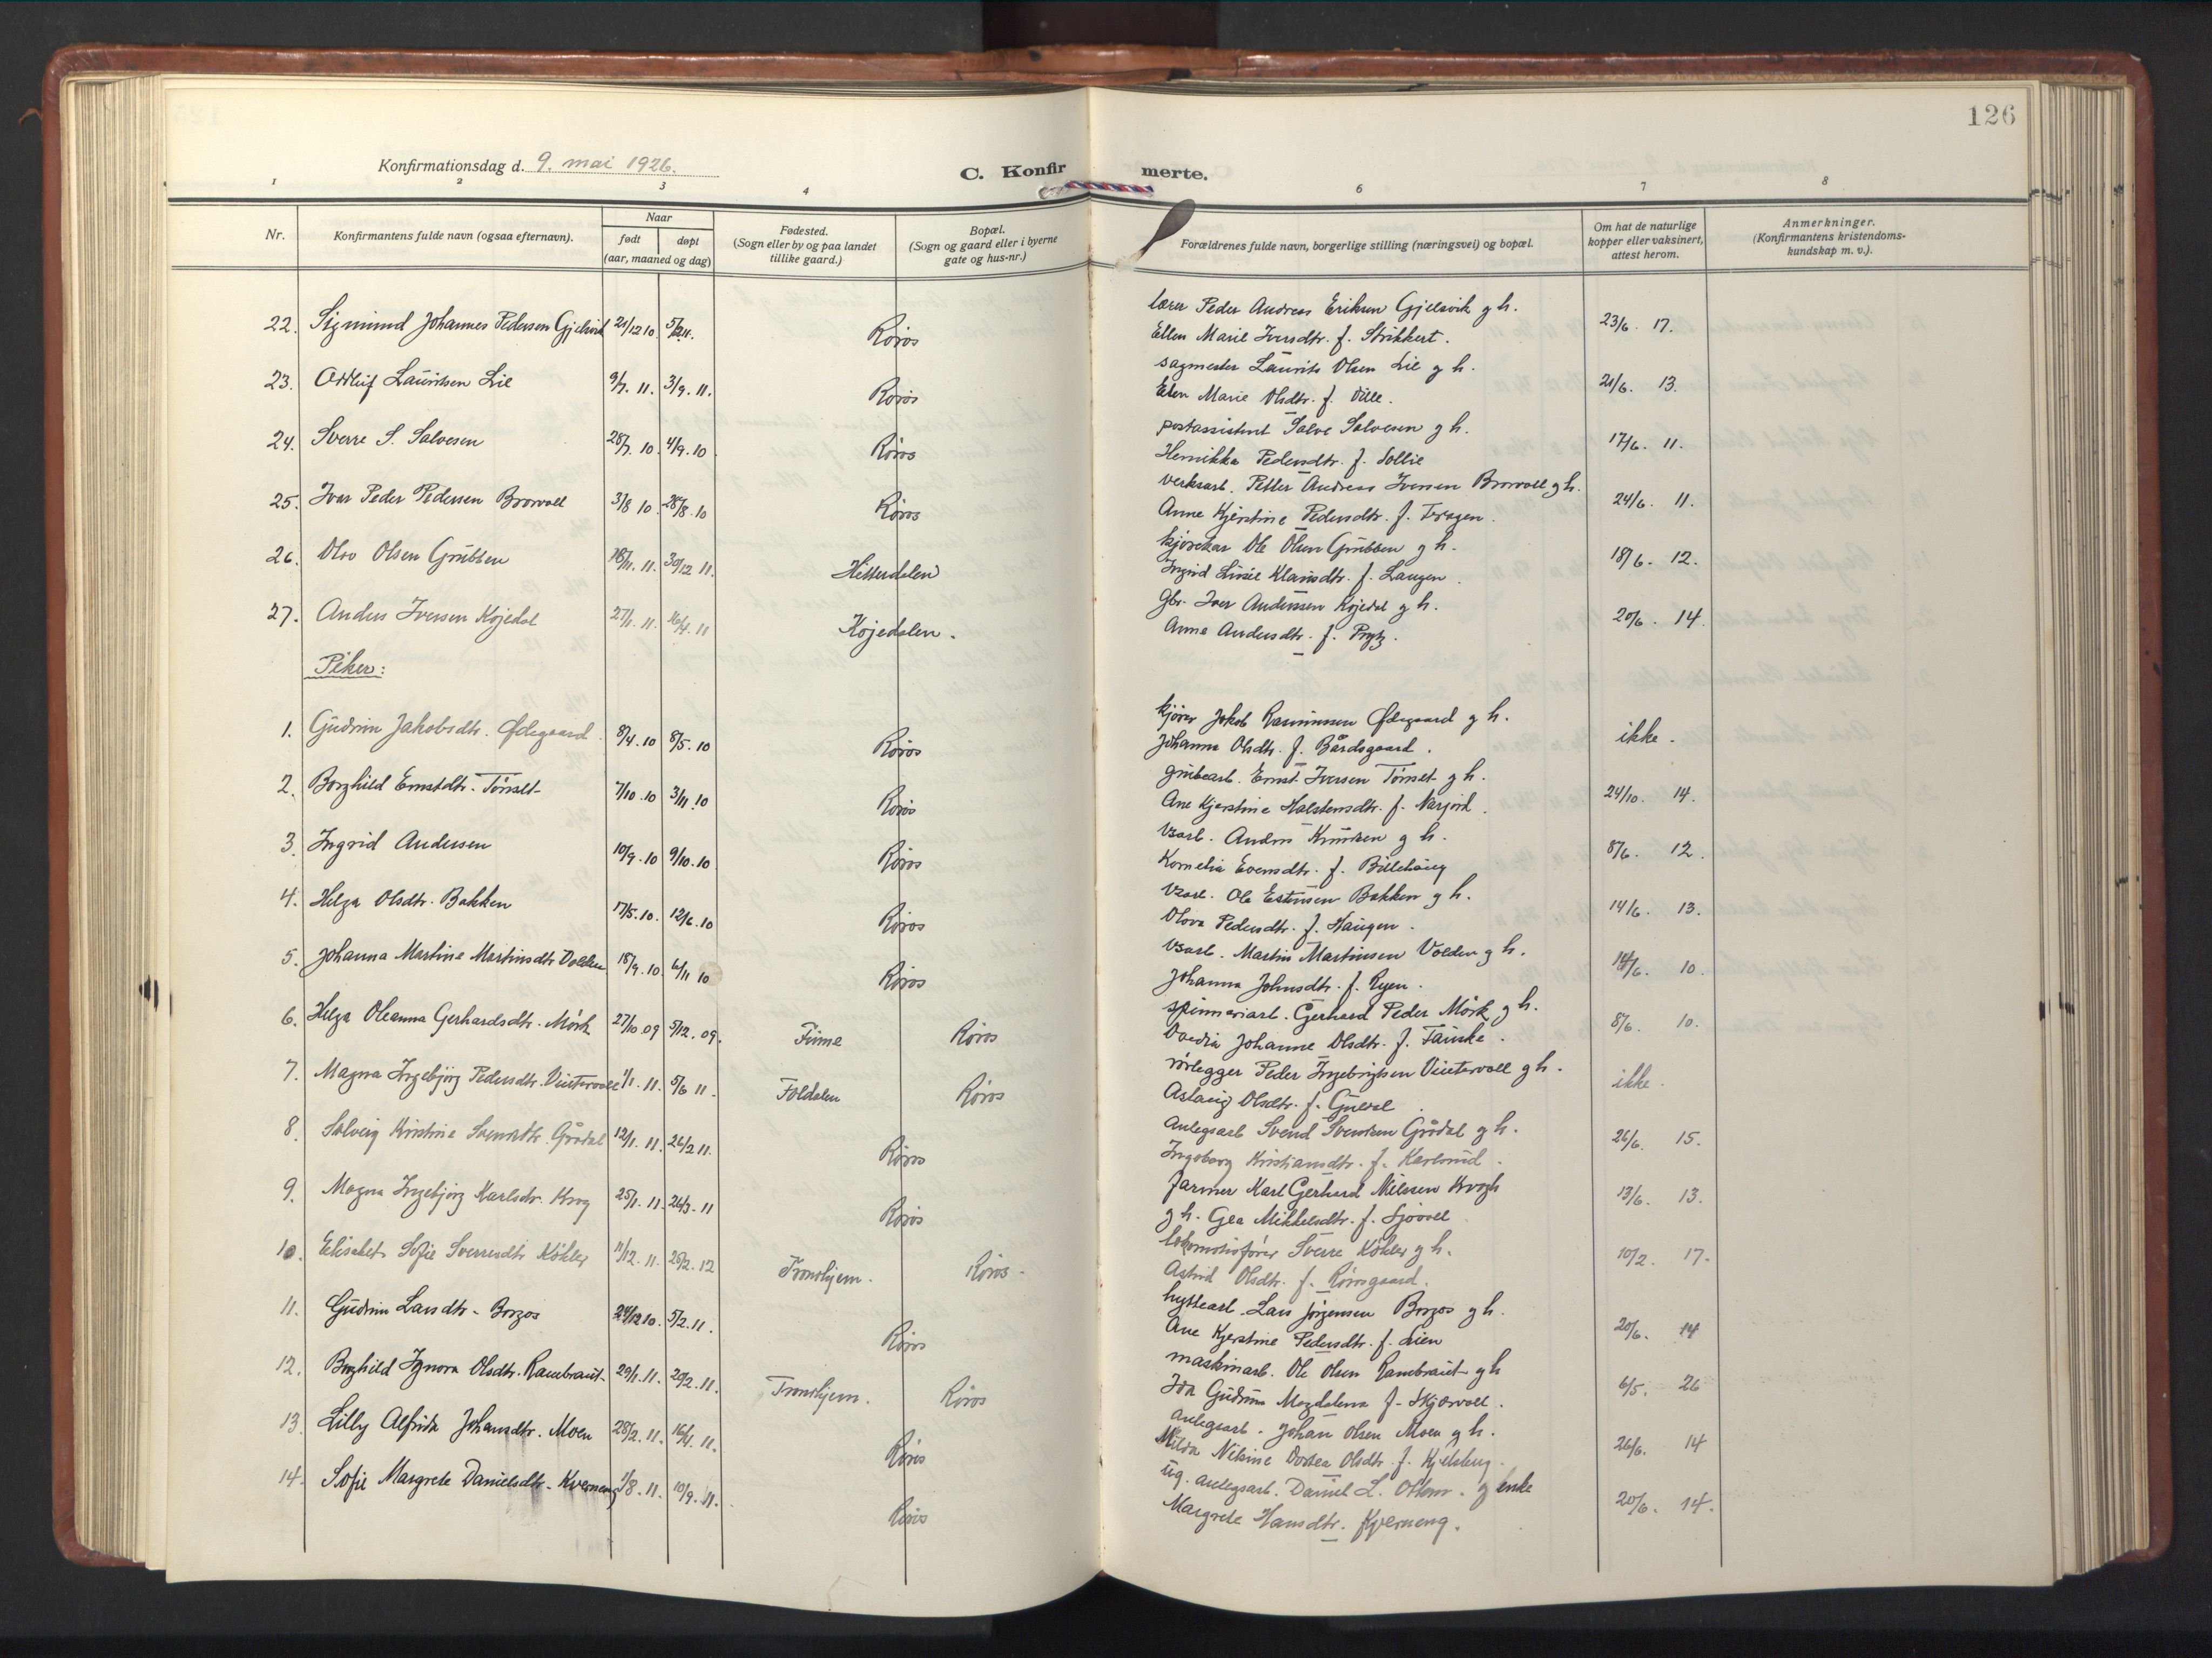 126
Konfirmationsdag d. 9. mai 1926.
C. Konfirmerte.
1 2 3 4 6 7 8
Nr.
Konfirmantens fulde navn (ogsaa efternavn).
Naar
født døpt
(aar, maaned og dag)
Fødested.
(Sogn eller by og paa landet
tillike gaard.)
Bopæl.
(Sogn og gaard eller i byerne
gate og hus-nr.)
Forældrenes fulde navn, borgerlige stilling (næringsvei) og bopæl.
Om hat de naturlige
kopper eller vaksinert,
attest herom.
Anmerkninger.
(Konfirmantens kristendoms-
kundskap m. v.).
22. Sigmund Johannes Pedersen Gjelsvik 21/12 10 Røros lærer Peder Andreas Eriksen Gjelsvik g h. 23/6. 17.
Ellen Marie Iversdtr. f. Strikkert.
23. Oddleif Lauritsen Lie 9/7. 11. 3/9. 11. Røros sagmester Laurits Olsen Lie g h. 21/6. 13.
Elen Marie Olsdtr. f.
24. Sverre S. Salvesen 28/7. 10. 4/9. 10 Røros postassistent Salve Salvesen g h. 17/6. 11.
Henrikka Pedersdtr. f. Sollie
25. Ivar Peder Pedersen Brovoll 3/8 10. 28/8. 10 Røros verksarb. Petter Andreas Iversen Brovoll g h. 24/6. 11.
Anne Kjerstine Pedersdtr. f. Feragen.
26. Olav Olsen Grubben 18/11. 11. 30/12 11. Hitterdalen kjørekar Ole Olsen Grubben g h. 18/6. 12.
Ingrid Linie Klausdtr. f. Langen.
27. Anders Iversen Kojedal 27/1. 11. 16/4. 11 Kojedalen. gbr. Iver Anderssen Kojedal g h. 20/6. 14.
Anne Andersdtr. f. Prytz.
Piker:
1. Gudrun Jakobsdtr. Ødegaard 8/4. 10 8/5. 10 Røros kjører Jakob Rasmussen Ødegaard g h. ikke.
Johanna Olsdtr. f. Bårdsgaard.
2. Borghild Ernstdtr. Tønset 7/10. 10 3/11. 10 Røros grubearb. Ernst Iversen Tønset g h. 24/10. 14.
Ane Kjerstine Halstensdtr. f. Narjord.
3. Ingrid Andersen 10/9. 10 9/10. 10 Røros Vsarb. Anders Knudsen g h. 8/6. 12.
Kornelia Evensdtr. f. Billehaug
4. Helga Olsdtr. Bakken 17/5. 10. 12/6. 10 Røros Vsarb. Ole Estensen Bakken g h. 14/6. 13.
Olova Pedersdtr. f. Haugen.
5. Johanna Martine Martinsdtr Volden 18/9. 10 6/11 10 Røros Vsarb. Martin Martinsen Volden g h. 14/6. 10.
Johanna Johnsdtr. f. Ryen.
6. Helga Oleanna Gerhardsdtr. Mørk 27/10 09 5/12. 09. Finne Røros spinneriarb. Gerhard Peder Mørk g h. 8/6. 10.
Johanne Olsdtr. f. Fauske.
7. Magna Ingebjørg Pedersdtr. Vintervoll 1/1. 11. 5/6 11. Foldalen Røros rørlegger Peder Ingebrigtsen Vintervoll g h. ikke.
Aslaug Olsdtr. f.
8. Solveig Kristine Svendsdtr. Grødal 12/1. 11. 26/2 11. Røros anlegsarb Svend Svendsen Grødal g h. 26/6. 15.
Ingeborg Kristiansdtr. f. Karlsrud.
9. Magna Ingebjørg Karlsdtr. Krog 25/1. 11. 26/3. 11 Røros farmer Karl Gerhard Nilssen Krogh 13/6. 13.
g h. Gea Mikkelsdtr. f. Sjøvoll
10. Elisabet Sofie Sverresdtr Köhler 11/12. 11. 25/2. 12 Trondhjem. Røros. lokomotivfører Sverre Köhler g h. 10/2. 17.
Astrid Olsdtr. f. Rørosgaard.
11. Gudrun Larsdtr. Borgos 24/12 10. 5/2. 11. Røros hyttearb. Lars Jørgensen Borgos g h. 20/6. 14
Ane Kjerstine Pedersdtr. f. Lien
12. Borghild Ignora Olsdtr. Rambraut 29/1. 11. 20/2. 11. Trondhjem. Røros maskinarb. Ole Olsen Rambraut g h 6/5. 26
Ida Gudrun Magdalena f. Skjørvoll.
13. Lilly Alfrida Johansdtr. Moen 28/2. 11. 16/4. 11. Røros anlegsarb. Johan Olsen Moen g h. 26/6. 14
Milda Nikine Dortea Olsdtr. f. Kjelsberg.
14. Sofie Margrete Danielsdtr. Kverneng 1/8. 11. 10/9. 11. Røros ug. anlegsarb. Daniel L. g enke 20/6. 14.
Margrete Hansdtr. Kverneng.